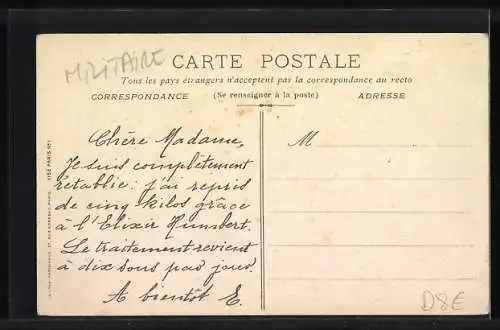 MILITAIRE
CARTE POSTALE
Tous les pays étrangers n'acceptent pas la correspondance au recto
CORRESPONDANCE (Se renseigner à la poste) ADRESSE
Chère Madame,
Je suis complètement
rétablie: j'ai repris
de cinq kilos grâce
à l'Elixir Humbert.
Le traitement revient
à dix sous par jour.
A bientôt E.
M
VISÉ PARIS Nº1
D8E